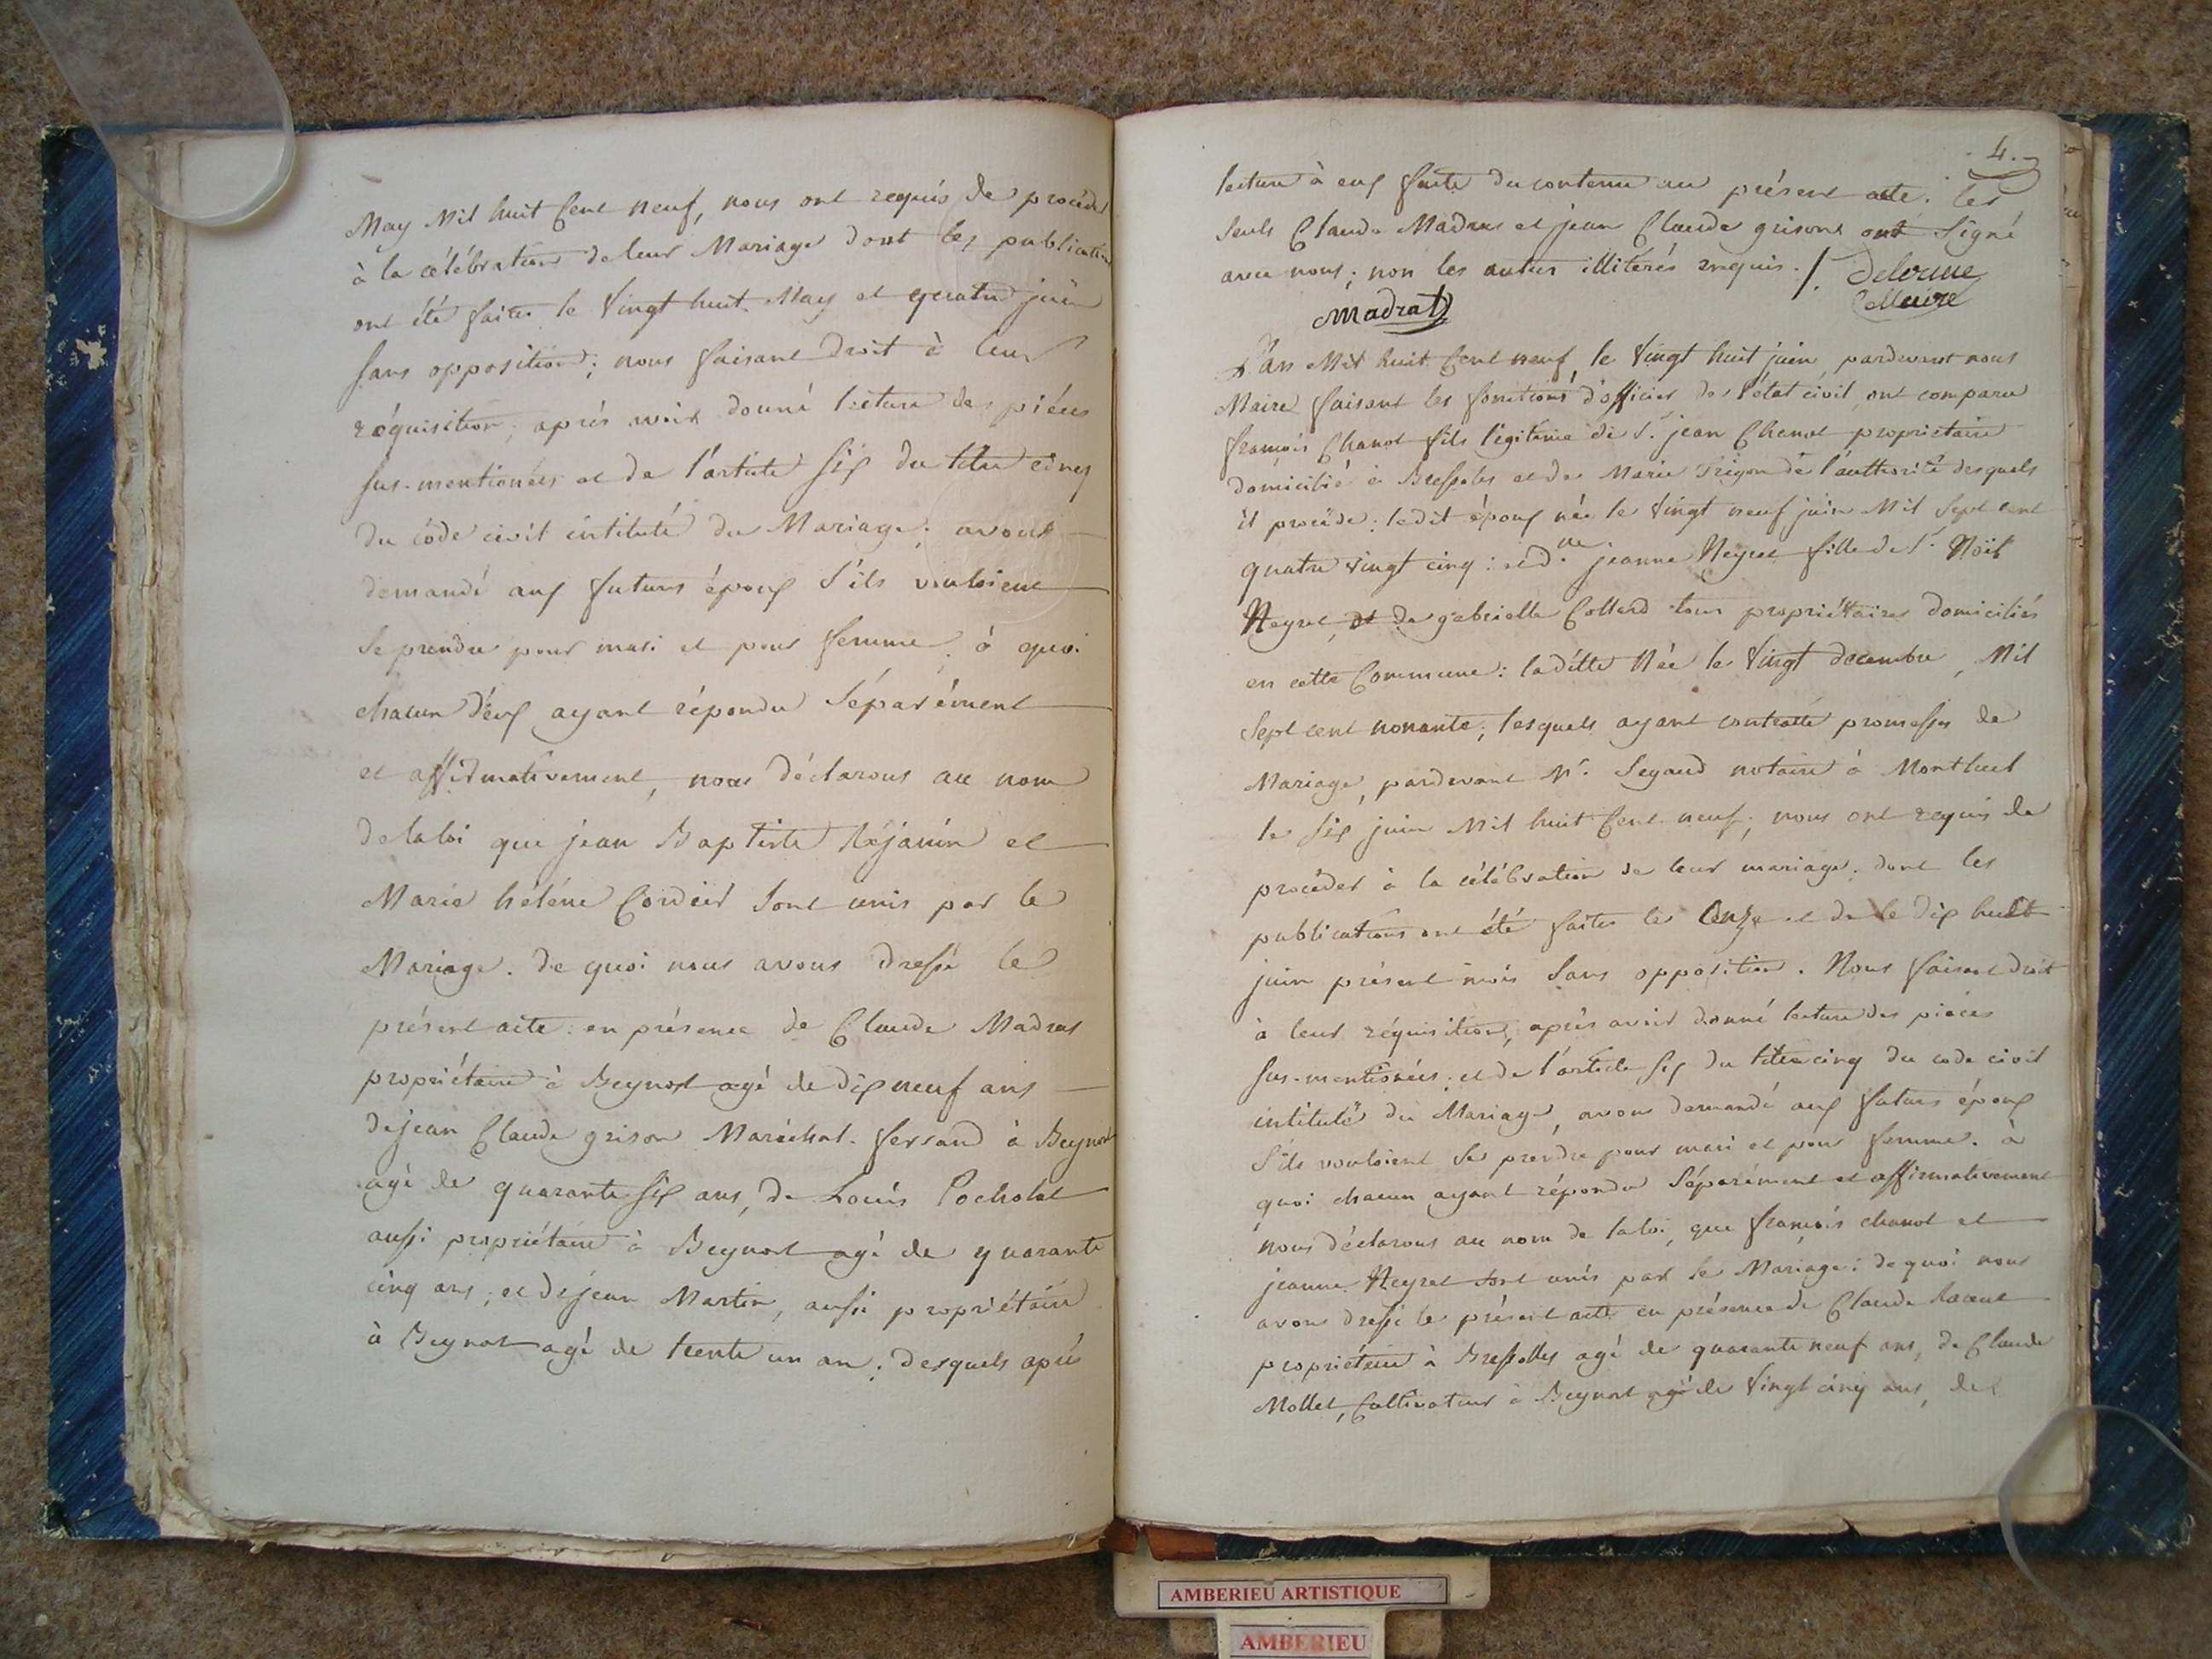 May Mil huit Cent neuf, nous ont requis de procéder
à la célébration de leur Mariage dont les publications
ont été faites le Vingt huit May et quatre juin
sans opposition; nous faisant droit à leur
réquisition, aprés avoir donné lecture des piéces
sus-mentionées et de l'article six du titre cinq
du códe civil intitulé du Mariage; avons
demandé aux futurs époux S'ils vouloient
Se prendre pour mari et pour femme, à quoi
chacun d'eux ayant répondu Séparément
et affirmativement, nous déclarons au nom
de la loi que jean Baptiste Réjanin et
Marie héléne Cordier Sont unis par le
Mariage. de quoi nous avons dressé le
présent acte: en présence de Claude Madras
propriétaire à Beynost agé de dix neuf ans
de jean Claude grison Maréchal-ferrand à Beynost
agé de quarante six ans, de Louis Pocholat
aussi propriétaire à Beynost agé de quarante
cinq ans; et de jean Martin, aussi propriétaire
à Beynost agé de trente un an; desquels aprés
4.
lecture à eux faite du contenu au présent acte. les
Seuls Claude Madras et jean Claude grison ont Signé
avec nous; non les autres illiterés requis. /. Delorme
Madrat Maire
L'an Mil huit Cent neuf, le Vingt huit juin, pardevant nous
Maire faisant les fonctions d'officier de l'état civil, ont comparu
françois Chanot fils légitime de S.r jean Chanot propriétaire
domicilié à Bressoles et de Marie Trigon de l'authorité desquels
il procéde; ledit époux née le Vingt neuf juin Mil Sept cent
quatre vingt cinq: et d.ne jeanne Neyret fille de S.r Noël
Neyret, et de gabrielle Collard tous propriétaires domiciliés
en cette Commune: laditte Née le Vingt decembre, Mil
Sept cent nonante; lesquels ayant contracté promesses de
Mariage, pardevant M.r Segaud notaire à Montluel
le six juin Mil huit Cent neuf; nous ont requis de
procéder à la célébration de leur mariage; dont les
publications ont été faites les Onze et de le dix huit
juin présent mois Sans opposition. Nous faisant droit
à leur réquisition, aprés avoir donné lecture des piéces
sus-mentionées; et de l'article six du titre cinq du code civil
intitulé du Mariage, avons demandé aux futurs époux
S'ils vouloient Se prendre pour mari et pour femme. à
quoi chacun ayant répondu Séparément et affirmativement
nous déclarons au nom de la loi, que françois chanot et
jeanne Neyret Sont unis par le Mariage: de quoi nous
avons dressé le présent acte en présence de Claude
propriétaire à Bressolles agé de quarante neuf ans, de Claude
Mollet, Cultivateur à Beynost agé de Vingt cinq ans, de
AMBERIEU ARTISTIQUE
AMBERIEU